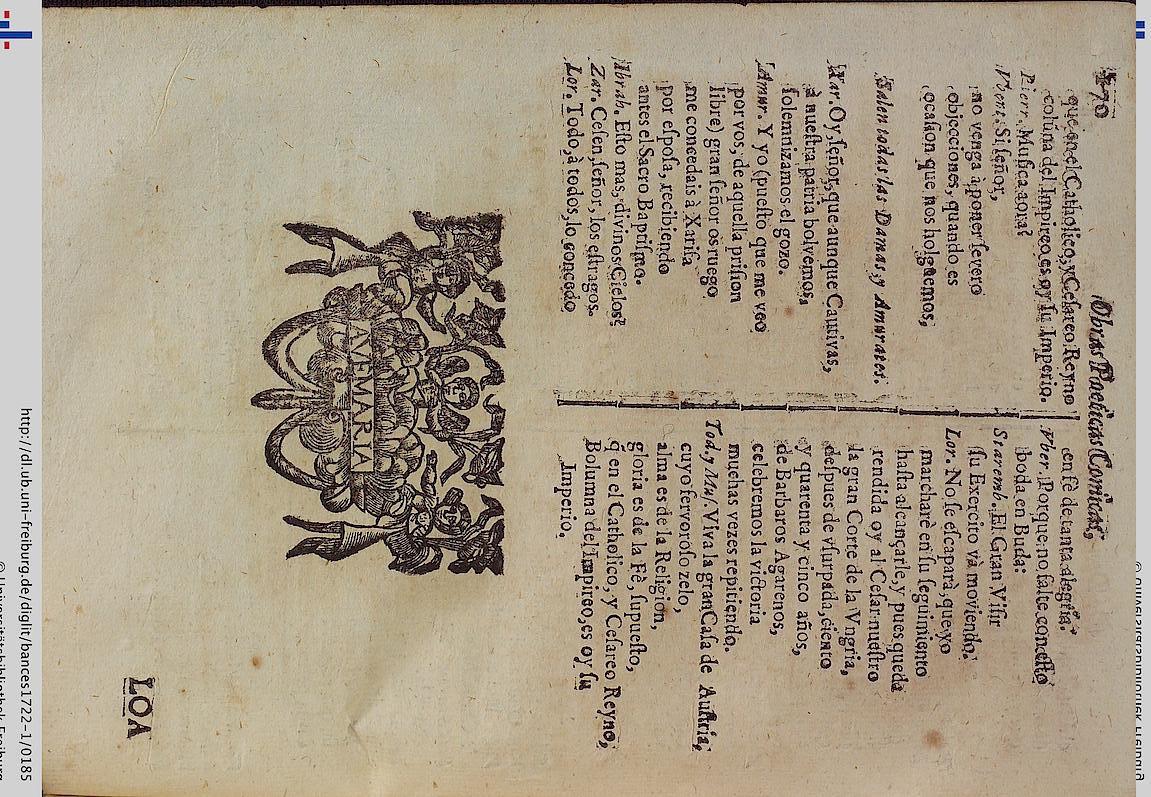 170
Obras Poeticas Comicas,
que en el Catholico, y Cesareo Reyno
coluna del Impireo, es oy su Imperio.
Pierr. Musica aora?
Vbert. Si señor,
no venga à poner severo
objecciones, quando es
ocasion que nos holguemos,
Salen todas las Damas, y Amurates.
Xar. Oy, señor, que aunque Cautivas,
à nuestra patria bolvemos,
solemnizamos el gozo.
Amur. Y yo (puesto que me veo
por vos, de aquella prision
libre) gran señor os ruego
me concedais à Xarifa
por esposa, recibiendo
antes el Sacro Baptismo.
Ibrah. Esto mas, divinos Cielos?
Zar. Cesen, señor, los estragos.
Lor. Todo, à todos, lo concedo
en fè de tanta alegria.
Vber. Porque no falte con esto
boda en Buda:
Staremb. El Gran Visir
su Exercito và moviendo.
Lor. No se escaparà, que yo
marcharè en su seguimiento
hasta alcançarle, y pues queda
rendida oy al Cesar nuestro
la gran Corte de la Vngria,
despues de vsurpada, ciento
y quarenta y cinco años,
de Barbaros Agarenos,
celebremos la victoria
muchas vezes repitiendo.
Tod. y Mus. Viva la gran Casa de Austria,
cuyo fervoroso zelo,
alma es de la Religion,
gloria es de la Fè, supuesto,
q̃ en el Catholico, y Cesareo Reyno,
Bolumna del Impireo, es oy su
Imperio.
AVE MARIA
LOA
http://dl.ub.uni-freiburg.de/diglit/bances1722-1/0185
© Universitätsbibliothek Freiburg